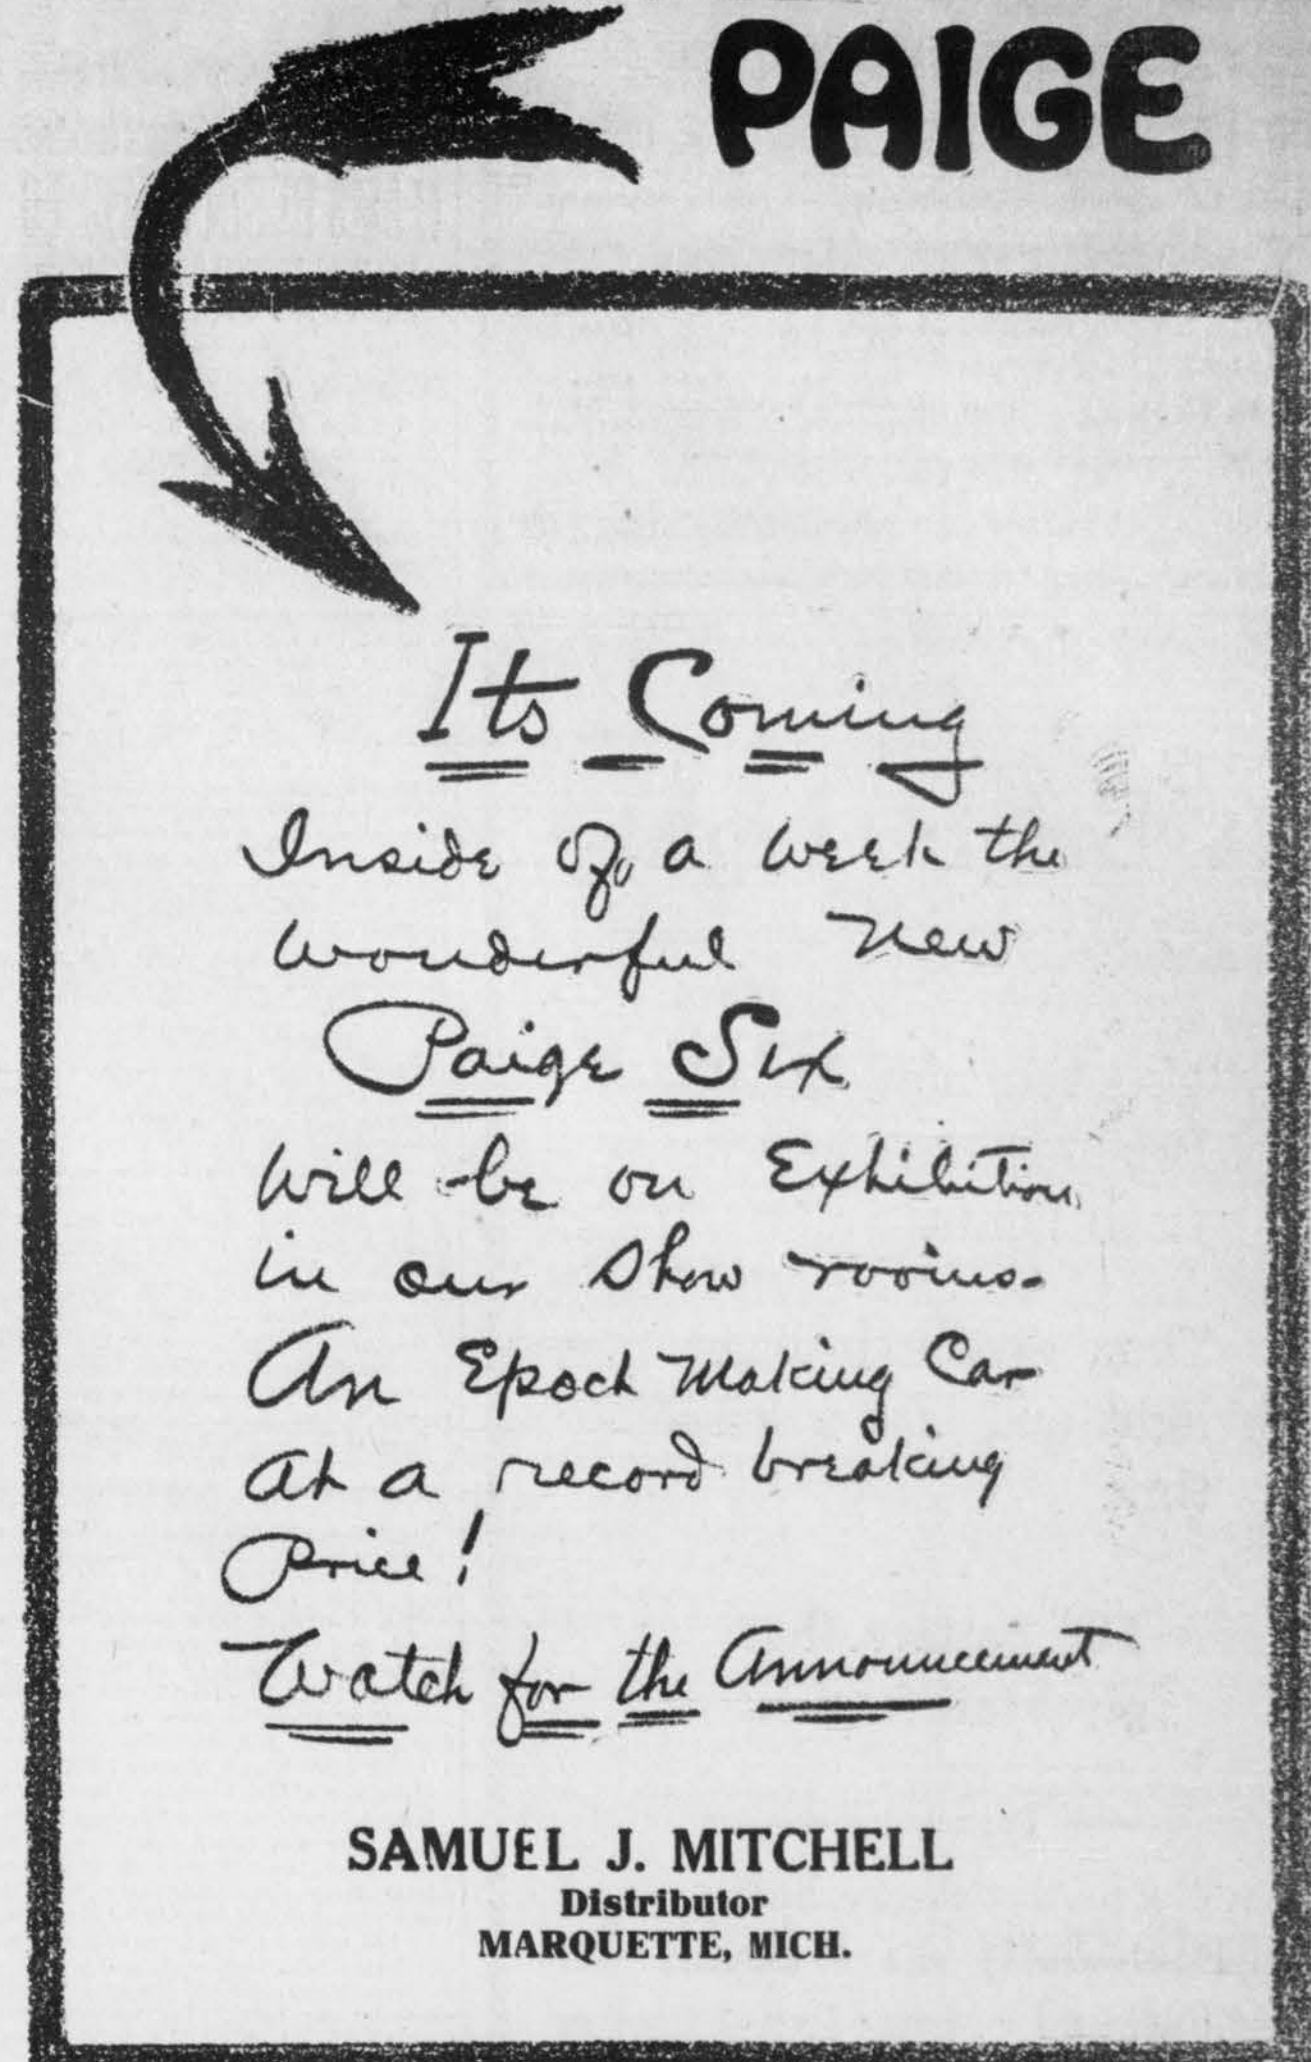 PAIGE
Its Coming
Inside of a week the
wonderful new
Paige Six
will be on Exhibition
in our show rooms-
An Epoch Making Car
at a record breaking
Price!
Watch for the Announcement
SAMUEL J. MITCHELL
Distributor
MARQUETTE, MICH.